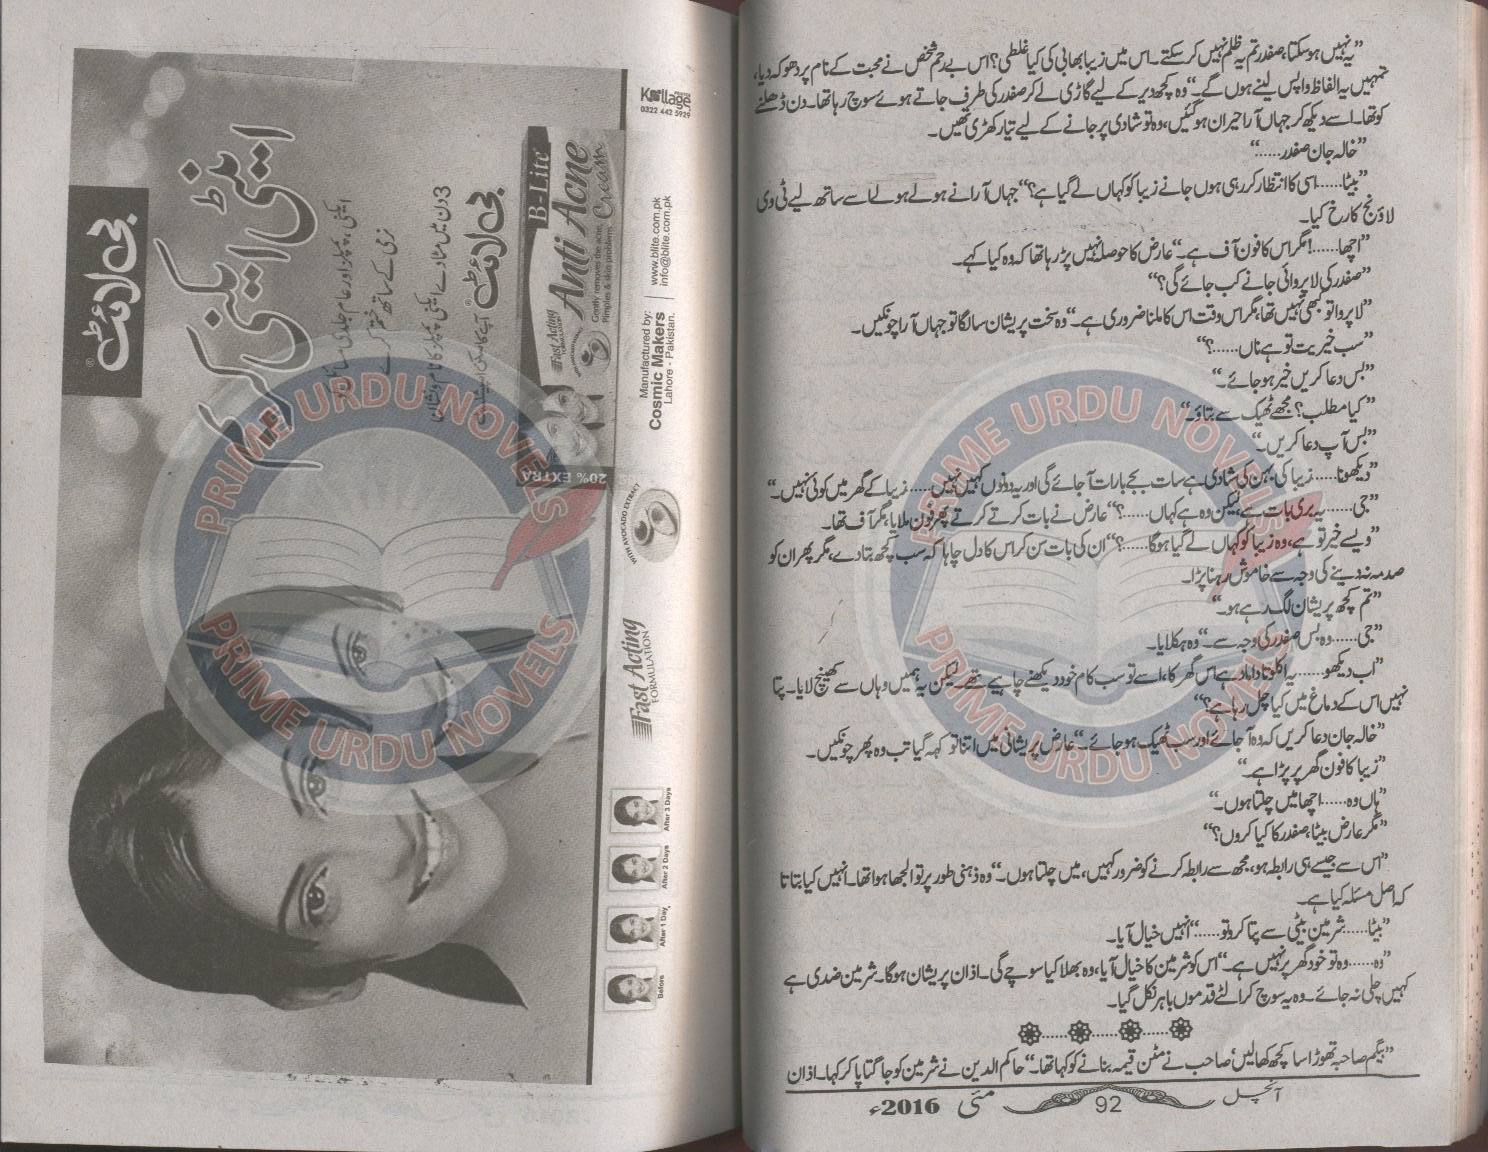 ”یہ نہیں ہوسکتا، صفدر تم یہ ظلم نہیں کرسکتے۔ اس میں زیبا بھابی کی کیا غلطی؟ اس بے رحم شخص نے محبت کے نام پر دھوکہ دیا،
تمہیں یہ الفاظ واپس لینے ہوں گے۔“ وہ کچھ دیر کے لیے گاڑی لے کر صفدر کی طرف جاتے ہوئے سوچ رہا تھا۔ دن ڈھلنے
کو تھا۔ اسے دیکھ کر جہاں آرا حیران ہوگئیں، وہ تو شادی پر جانے کے لیے تیار کھڑی تھیں۔
”خالہ جان صفدر……“
”بیٹا…… اسی کا انتظار کررہی ہوں جانے زیبا کو کہاں لے گیا ہے؟“ جہاں آرا نے ہولے ہولے اسے ساتھ لیے ٹی وی
لاؤنج کا رخ کیا۔
”اچھا……! مگر اس کا فون آف ہے۔“ عارض کا حوصلہ نہیں پڑ رہا تھا کہ وہ کیا کہے۔
”صفدر کی لاپروائی جانے کب جائے گی؟“
”لاپروا تو کبھی نہیں تھا، مگر اس وقت اس کا ملنا ضروری ہے۔“ وہ سخت پریشان سا لگا تو جہاں آرا چونکیں۔
”سب خیریت تو ہے ناں……؟“
”بس دعا کریں خیر ہوجائے۔“
”کیا مطلب؟ مجھے ٹھیک سے بتاؤ۔“
”بس آپ دعا کریں۔“
”دیکھو نا…… زیبا کی بہن کی شادی ہے سات بجے بارات آجائے گی اور یہ دونوں کہیں نہیں…… زیبا کے گھر میں کوئی نہیں۔“
”جی…… یہ بری بات ہے، لیکن وہ ہے کہاں……؟“ عارض نے بات کرتے کرتے پھر فون ملایا، مگر آف تھا۔
”ویسے خیر تو ہے، وہ زیبا کو کہاں لے گیا ہوگا……؟“ ان کی بات سن کر اس کا دل چاہا کہ سب کچھ بتادے، مگر پھر ان کو
صدمہ نہ دینے کی وجہ سے خاموش رہنا پڑا۔
”تم کچھ پریشان لگ رہے ہو۔“
”جی…… وہ بس صفدر کی وجہ سے۔“ وہ ہکلایا۔
”اب دیکھو…… یہ اکلوتا داماد ہے اس گھر کا، اسے تو سب کام خود دیکھنے چاہیے تھے۔ لیکن یہ ہمیں وہاں سے کھینچ لایا۔ پتا
نہیں اس کے دماغ میں کیا چل رہا ہے؟“
”خالہ جان دعا کریں کہ وہ آجائے اور سب ٹھیک ہوجائے۔“ عارض پریشانی میں اتنا تو کہہ گیا تب وہ پھر چونکیں۔
”زیبا کا فون گھر پر پڑا ہے۔“
”ہاں وہ…… اچھا میں چلتا ہوں۔“
”مگر عارض بیٹا، صفدر کا کیا کروں؟“
”اس سے جیسے ہی رابطہ ہو، مجھ سے رابطہ کرنے کو ضرور کہیں، میں چلتا ہوں۔“ وہ ذہنی طور پر تو الجھا ہوا تھا۔ انہیں کیا بتاتا
کہ اصل مسئلہ کیا ہے۔
”بیٹا…… شرمین بیٹی سے پتا کرو تو……“ انہیں خیال آیا۔
”وہ…… وہ تو خود گھر پر نہیں ہے۔“ اس کو شرمین کا خیال آیا، وہ بھلا کیا سوچے گی۔ اذان پریشان ہوگا۔ شرمین ضدی ہے
کہیں چلی نہ جائے۔ وہ یہ سوچ کر الٹے قدموں باہر نکل گیا۔
”بیگم صاحبہ تھوڑا سا کچھ کھالیں، صاحب نے مٹن قیمہ بنانے کو کہا تھا۔“ حاکم الدین نے شرمین کو جاگتا پاکر کہا۔ اذان
آنچل 92 مئی 2016ء
بی لائٹ®
اینٹی ایکنی کریم
ایکنی، پمپلز اور عام جلدی مسائل کو
نرمی کے ساتھ ختم کرے
3 دن میں مٹادے ایکنی پمپلز کا نام و نشاں
بی لائٹ®
B-Lite
Anti Acne
Cream
Gently removes the acne,
Pimples & skin problems
Fast Acting
20% EXTRA
Kollage
0322 442 5929
Manufactured by:
Cosmic Makers
Lahore - Pakistan.
www.blite.com.pk
info@blite.com.pk
WITH AVOCADO EXTRACT
Fast Acting
FORMULATION
Before
After 1 Day
After 2 Days
After 3 Days
PRIME URDU NOVELS
PRIME URDU NOVELS
PRIME URDU NOVELS
PRIME URDU NOVELS